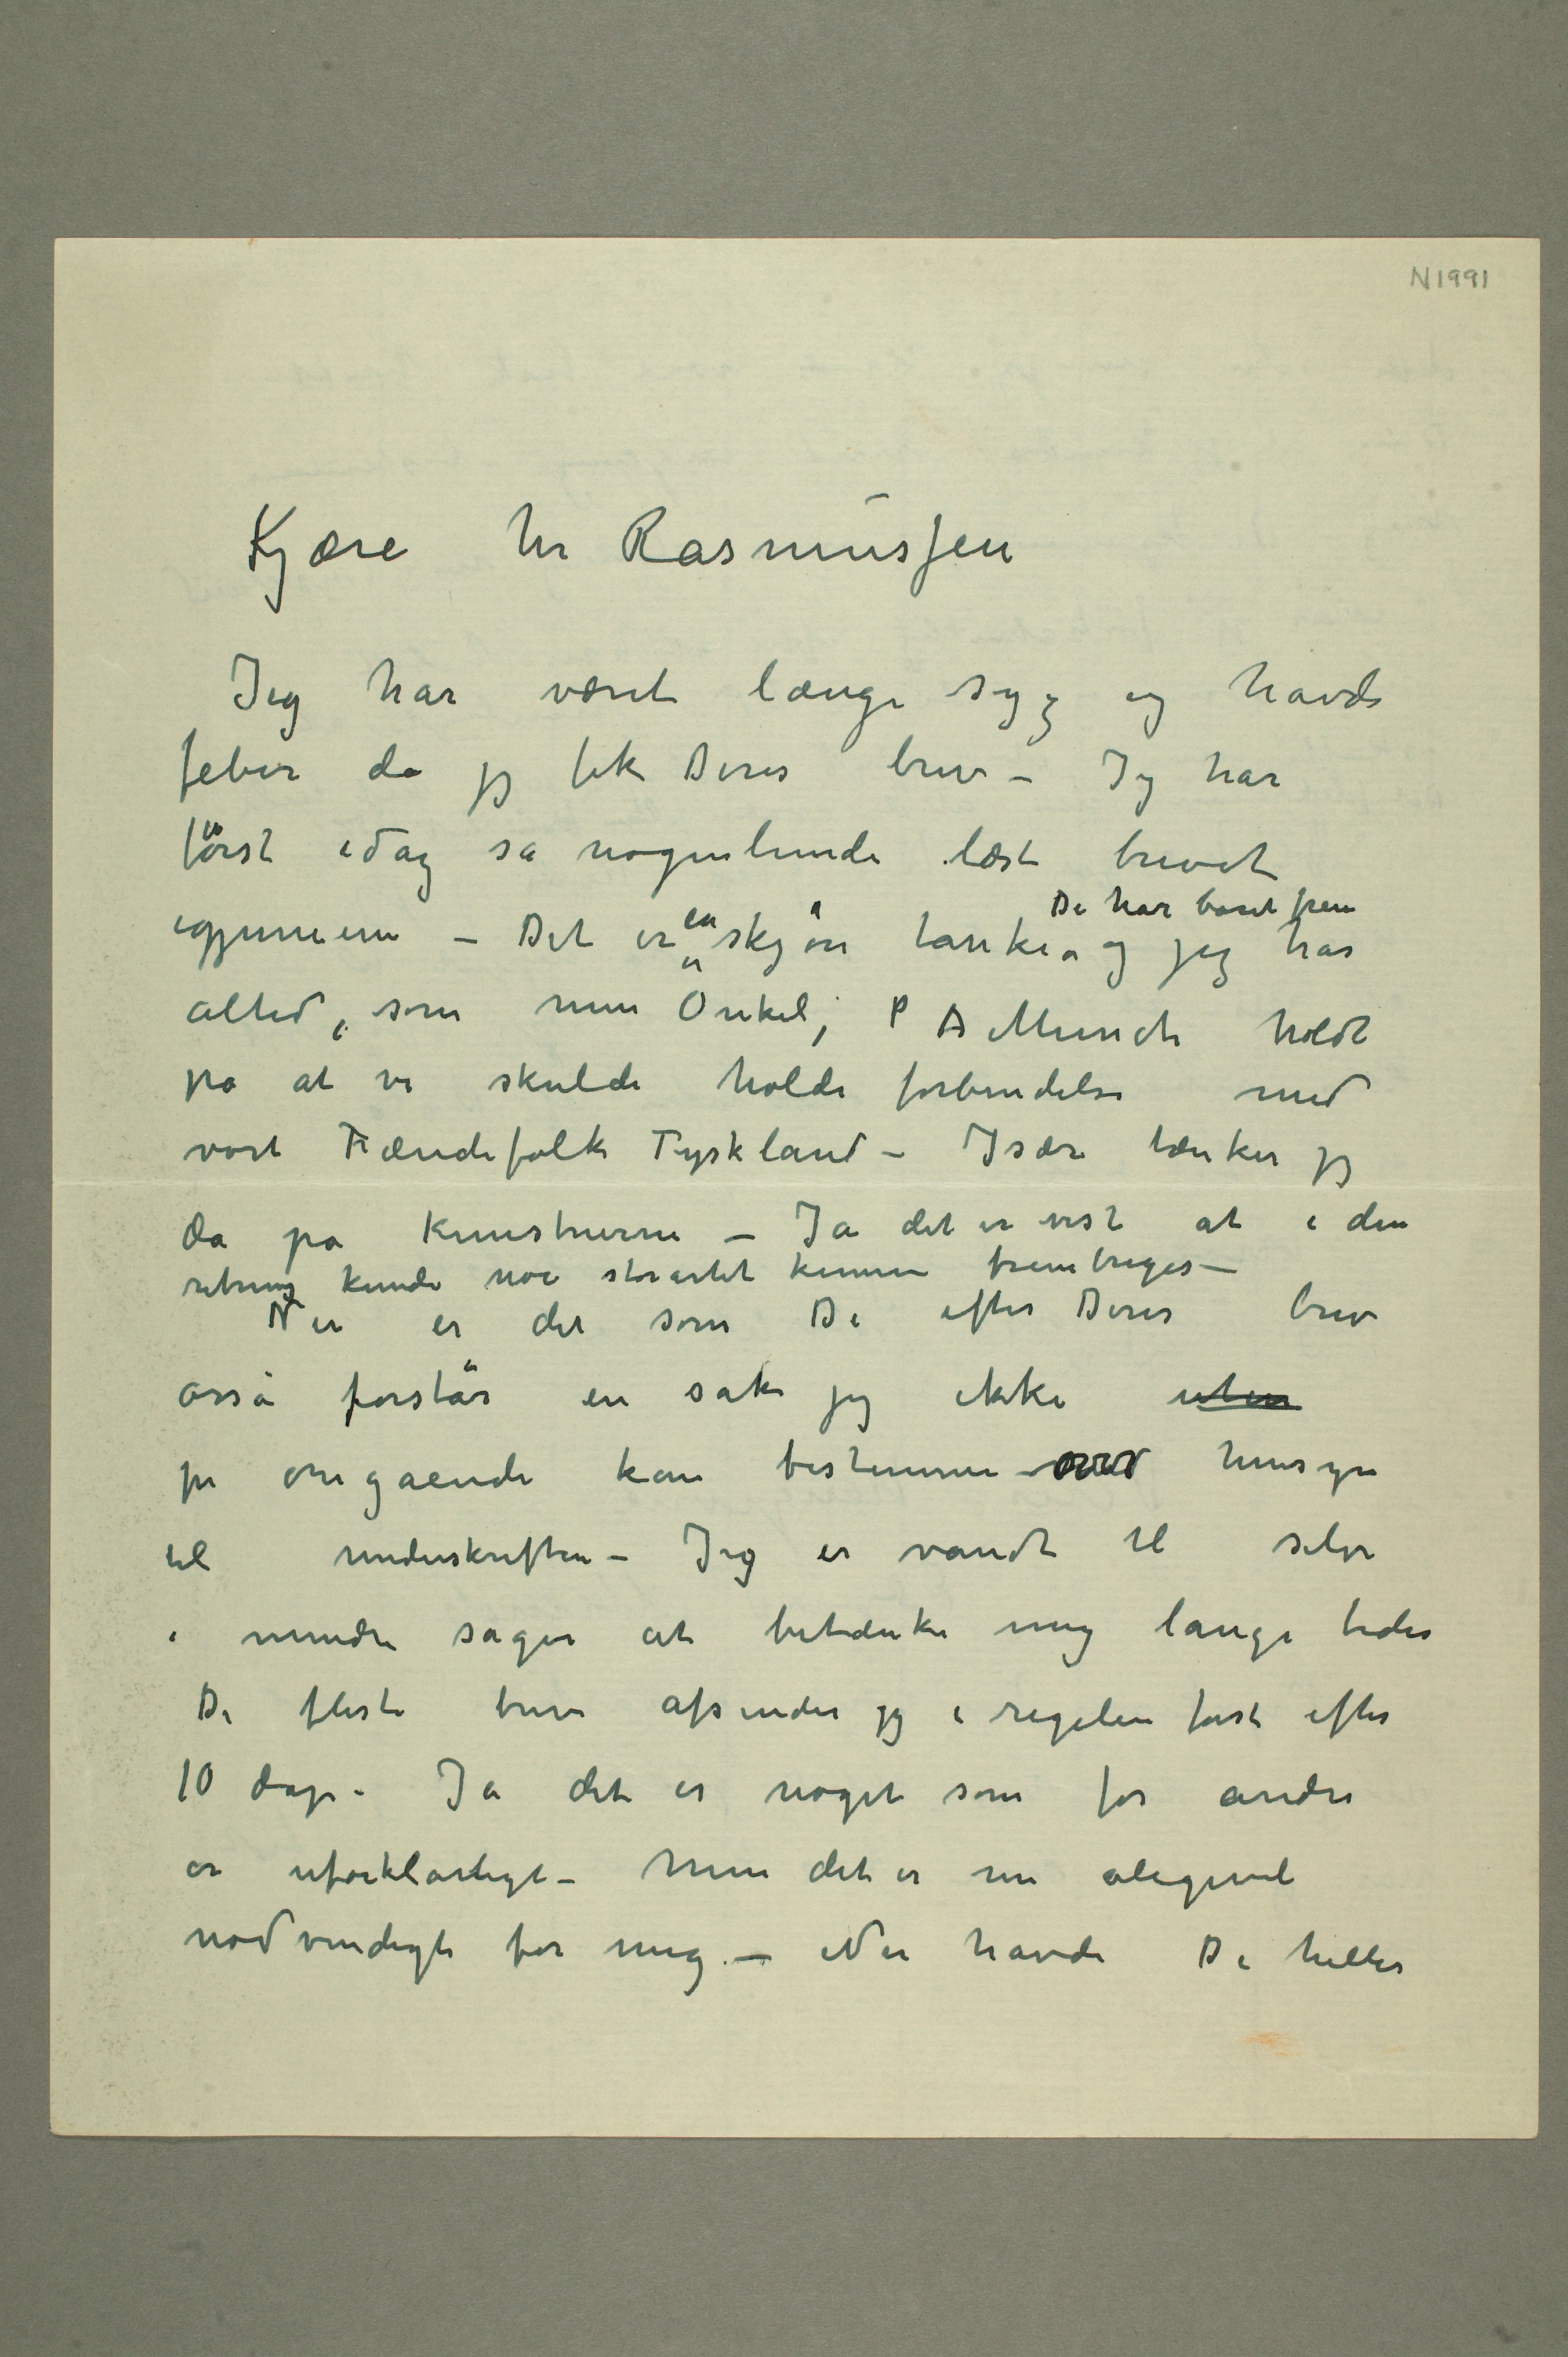 N1991
Kjære hr Rasmussen
Jeg har været længe syg og havde
feber da jeg fik Deres brev – Jeg har
først idag så nogenlunde læst brevet
igjennem – Det er en skjøn tanke De har baret frem og jeg har
altid, som min Onkel, P A Munch holdt
på at vi skulde holde forbindelse med
vort Frændefolk Tyskland – Især tænker jeg
da på kunstnerne – Ja det er vist at i den
retning kunde noe storartet kunne frembriges –
Nu er det som De efter Deres brev
osså forstår en sak jeg ikke uten
på omgående kan bestemme over hensyn
til underskriften – Jeg er vandt til selv
i mindre sager at betænke mig lange tider
De fleste breve afsender jeg i regelen først efter
10 dage. Ja det er noget som for andre
er uforklarligt – Men det er nu aligevel
nødvendigt for mig. – Nu havde De heller